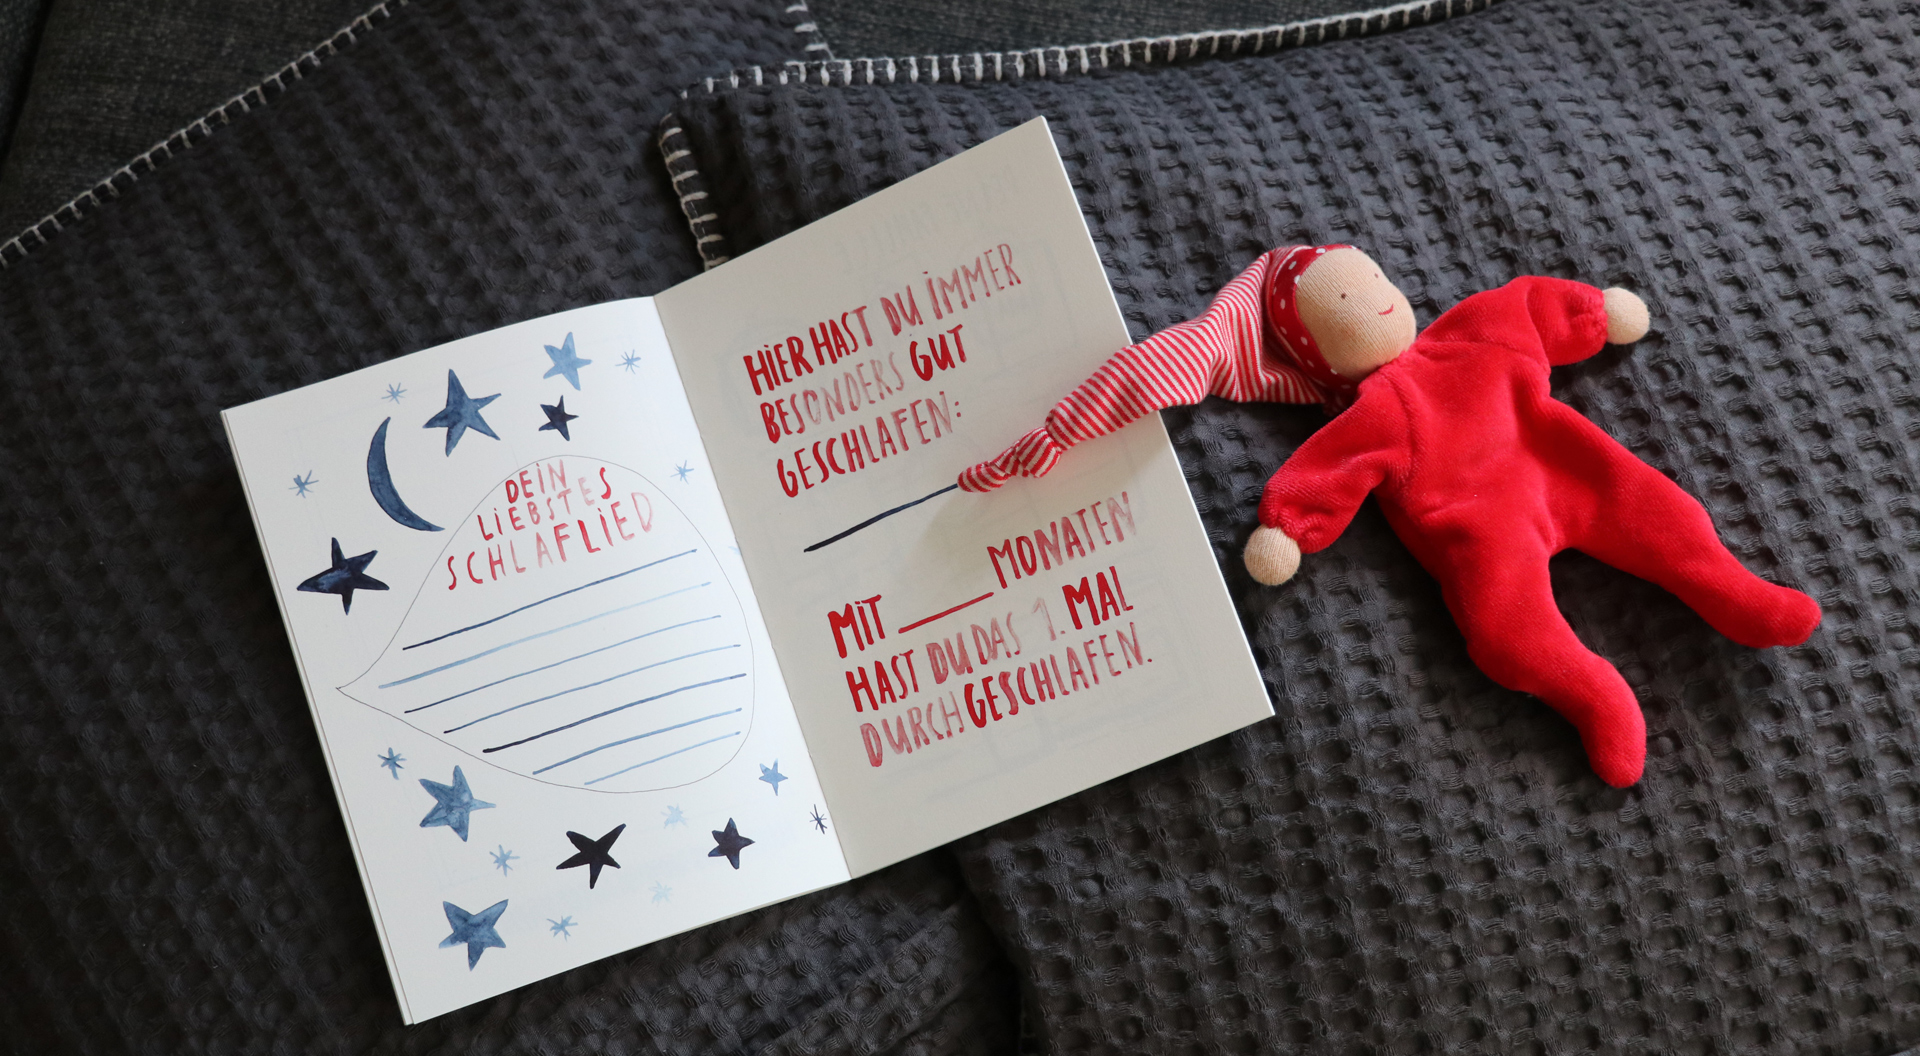 DEIN
LIEBSTES
SCHLAFLIED
HIER HAST DU IMMER
BESONDERS GUT
GESCHLAFEN:
MIT ____ MONATEN
HAST DU DAS 1. MAL
DURCHGESCHLAFEN.